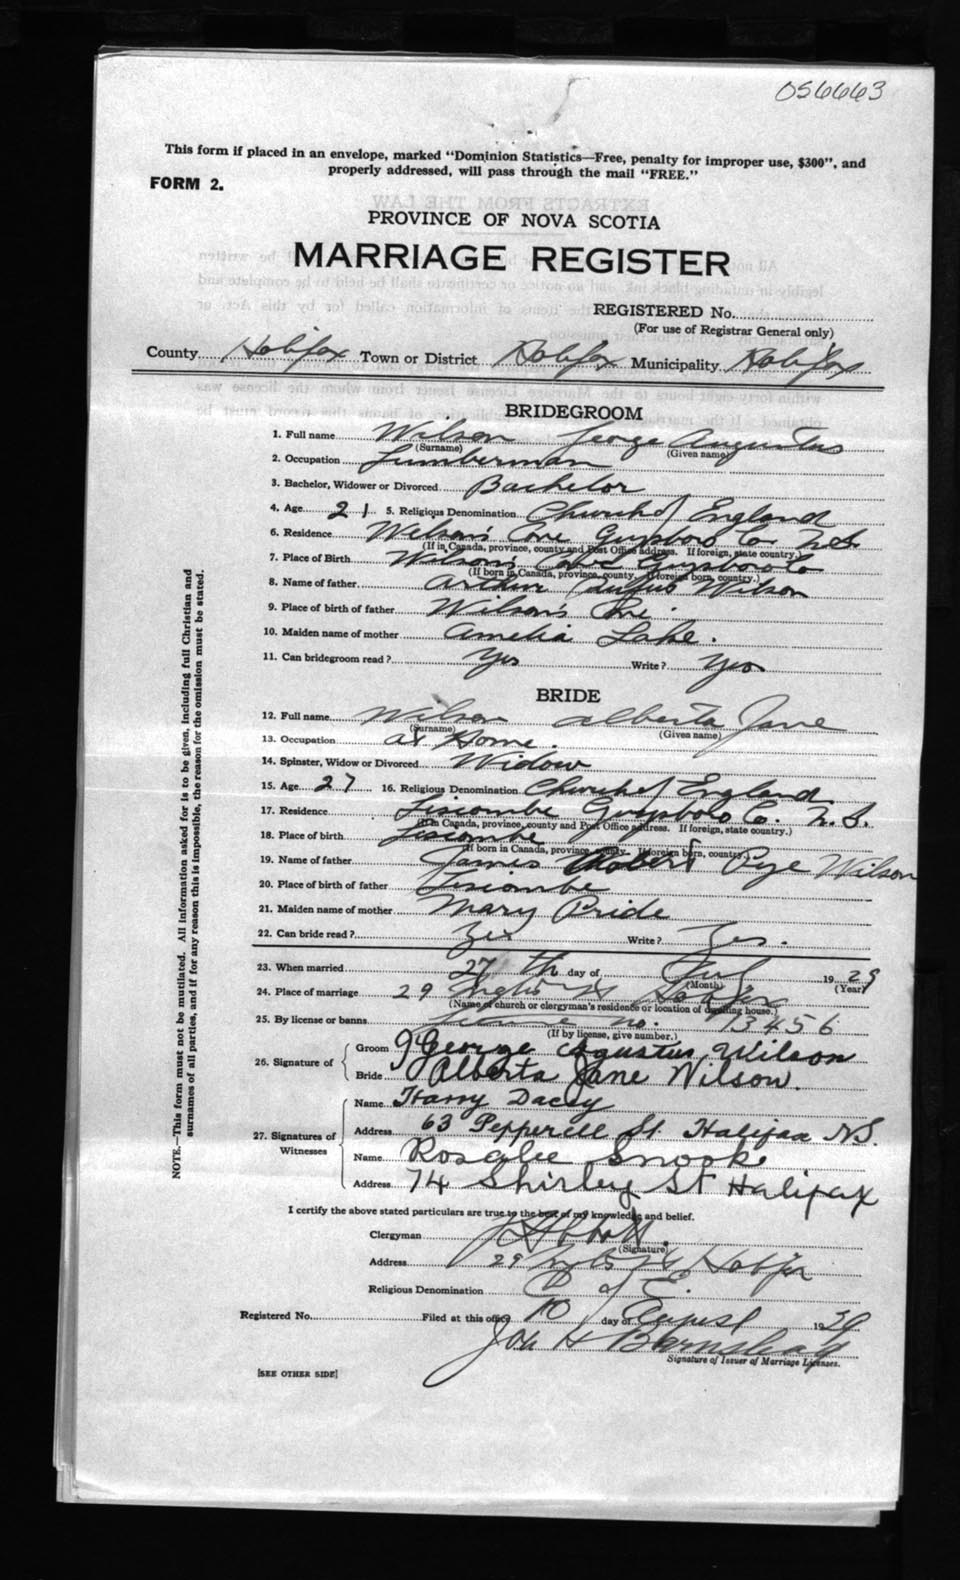 056663
This form if placed in an envelope, marked "Dominion Statistics—Free, penalty for improper use, $300", and
properly addressed, will pass through the mail "FREE."
FORM 2.
PROVINCE OF NOVA SCOTIA
MARRIAGE REGISTER
REGISTERED No.
(For use of Registrar General only)
County Halifax Town or District Halifax Municipality Halifax
BRIDEGROOM
1. Full name Wilson George Augustus
(Surname) (Given name)
2. Occupation Lumberman
3. Bachelor, Widower or Divorced Bachelor
4. Age 21 5. Religious Denomination Church of England
6. Residence Wilson's Cove Guysboro Co. N.S.
(If in Canada, province, county and Post Office address. If foreign, state country.)
7. Place of Birth Wilson's Cove Guysboro Co
(If born in Canada, province, county, If foreign born, country.)
8. Name of father Arthur Rufus Wilson
9. Place of birth of father Wilson's Cove.
10. Maiden name of mother Amelia Lake.
11. Can bridegroom read? Yes Write? Yes
BRIDE
12. Full name Wilson Alberta Jane
(Surname) (Given name)
13. Occupation at Home.
14. Spinster, Widow or Divorced Widow
15. Age 27 16. Religious Denomination Church of England
17. Residence Liscombe Guysboro Co. N.S.
(If in Canada, province, county and Post Office address. If foreign, state country.)
18. Place of birth Liscombe
(If born in Canada, province, county. If foreign born, country.)
19. Name of father James Robert Pye Wilson
20. Place of birth of father Liscombe
21. Maiden name of mother Mary Pride
22. Can bride read? Yes Write? Yes.
23. When married 27th day of July 1929
(Month) (Year)
24. Place of marriage 29 Inglis St Halifax
(Name of church or clergyman's residence or location of dwelling house.)
25. By license or banns License no. 13456
(If by license, give number.)
26. Signature of
Groom George Agustus Wilson
Bride Alberta Jane Wilson.
27. Signatures of Witnesses
Name Harry Dacey
Address 63 Pepperell St. Halifax N.S.
Name Rosalee Snook
Address 74 Shirley St Halifax
I certify the above stated particulars are true to the best of my knowledge and belief.
Clergyman
(Signature)
Address 29 Inglis St Halifax
Religious Denomination C of E.
Registered No. Filed at this office 10 day of August 1930
Signature of Issuer of Marriage Licenses.
[SEE OTHER SIDE]
NOTE.—This form must not be mutilated. All information asked for is to be given, including full Christian and
surnames of all parties, and if for any reason this is impossible, the reason for the omission must be stated.